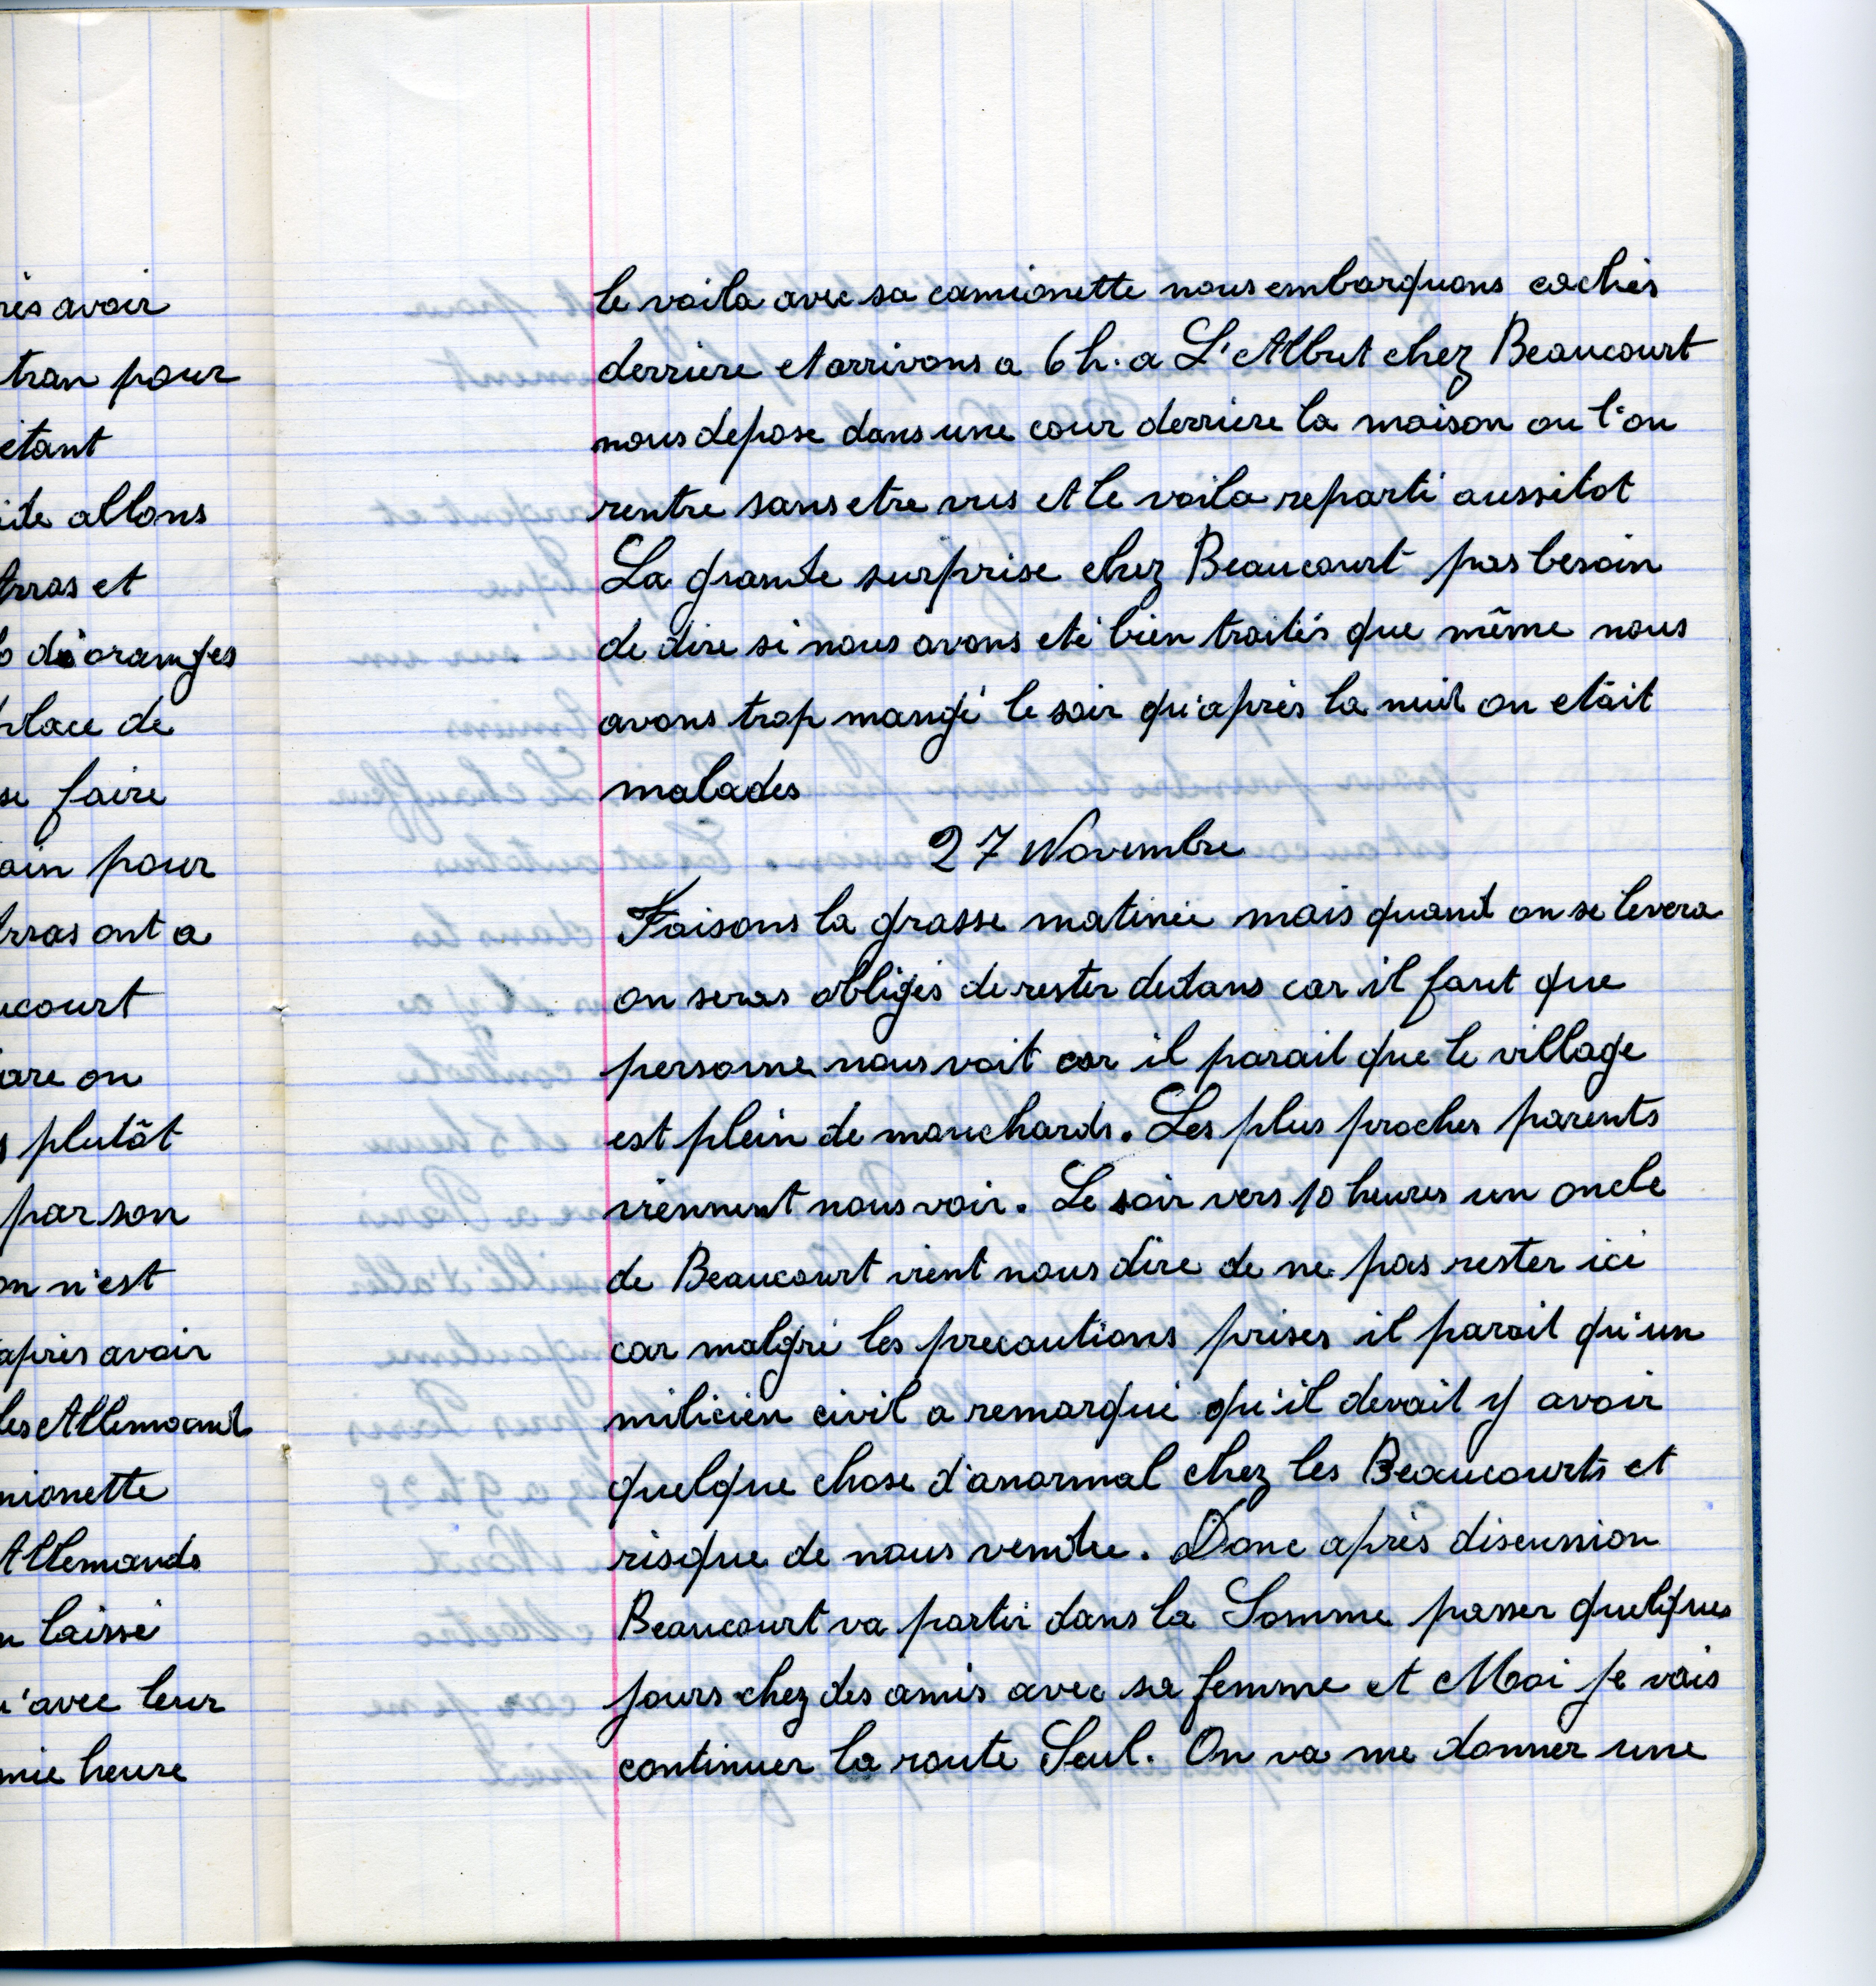 rès avoir
tran pour
étant
ide allons
rras et
d'oranges
place de
se faire
ain pour
rras ont a
court
are on
plutôt
par son
on n'est
après avoir
les Allemands
mionette
Allemands
laissé
'avec leur
mie heure
le voila avec sa camionette nous embarquons cachés
derriere et arrivons a 6 h. a L'Albret chez Beaucourt
nous depose dans une cour derriere la maison ou l'on
rentre sans etre vus et le voila reparti aussitot
La grande surprise chez Beaucourt pas besoin
de dire si nous avons eté bien traités que même nous
avons trop mangé le soir qu'après la nuit on etait
malades
27 Novembre
Faisons la grasse matinée mais quand on se levera
on seras obligés de rester dedans car il faut que
personne nous voit car il parait que le village
est plein de mouchards. Les plus proches parents
viennent nous voir. Le soir vers 10 heures un oncle
de Beaucourt vient nous dire de ne pas rester ici
car malgré les precautions prises il parait qu'un
milicien civil a remarqué qu'il devait y avoir
quelque chose d'anormal chez les Beaucourts et
risque de nous vendre. Donc après discussion
Beaucourt va partir dans la Somme passer quelques
jours chez des amis avec sa femme et Moi je vais
continuer la route Seul. On va me donner une